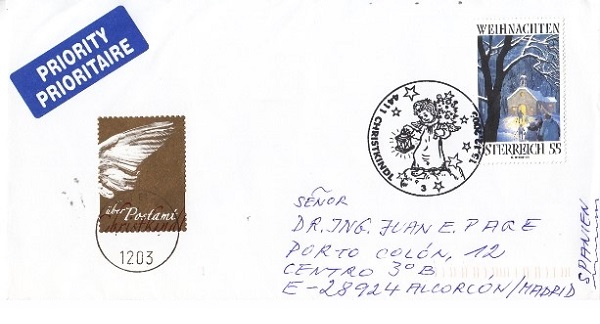 PRIORITY
PRIORITAIRE
WEIHNACHTEN
ÖSTERREICH 55
4411 CHRISTKINDL
3
über Postamt
Christkindl
1203
SEÑOR
DR. ING. JUAN E. PAGE
PORTO COLÓN, 12
CENTRO 3º B
E-28924 ALCORCÓN/MADRID
SPANIEN